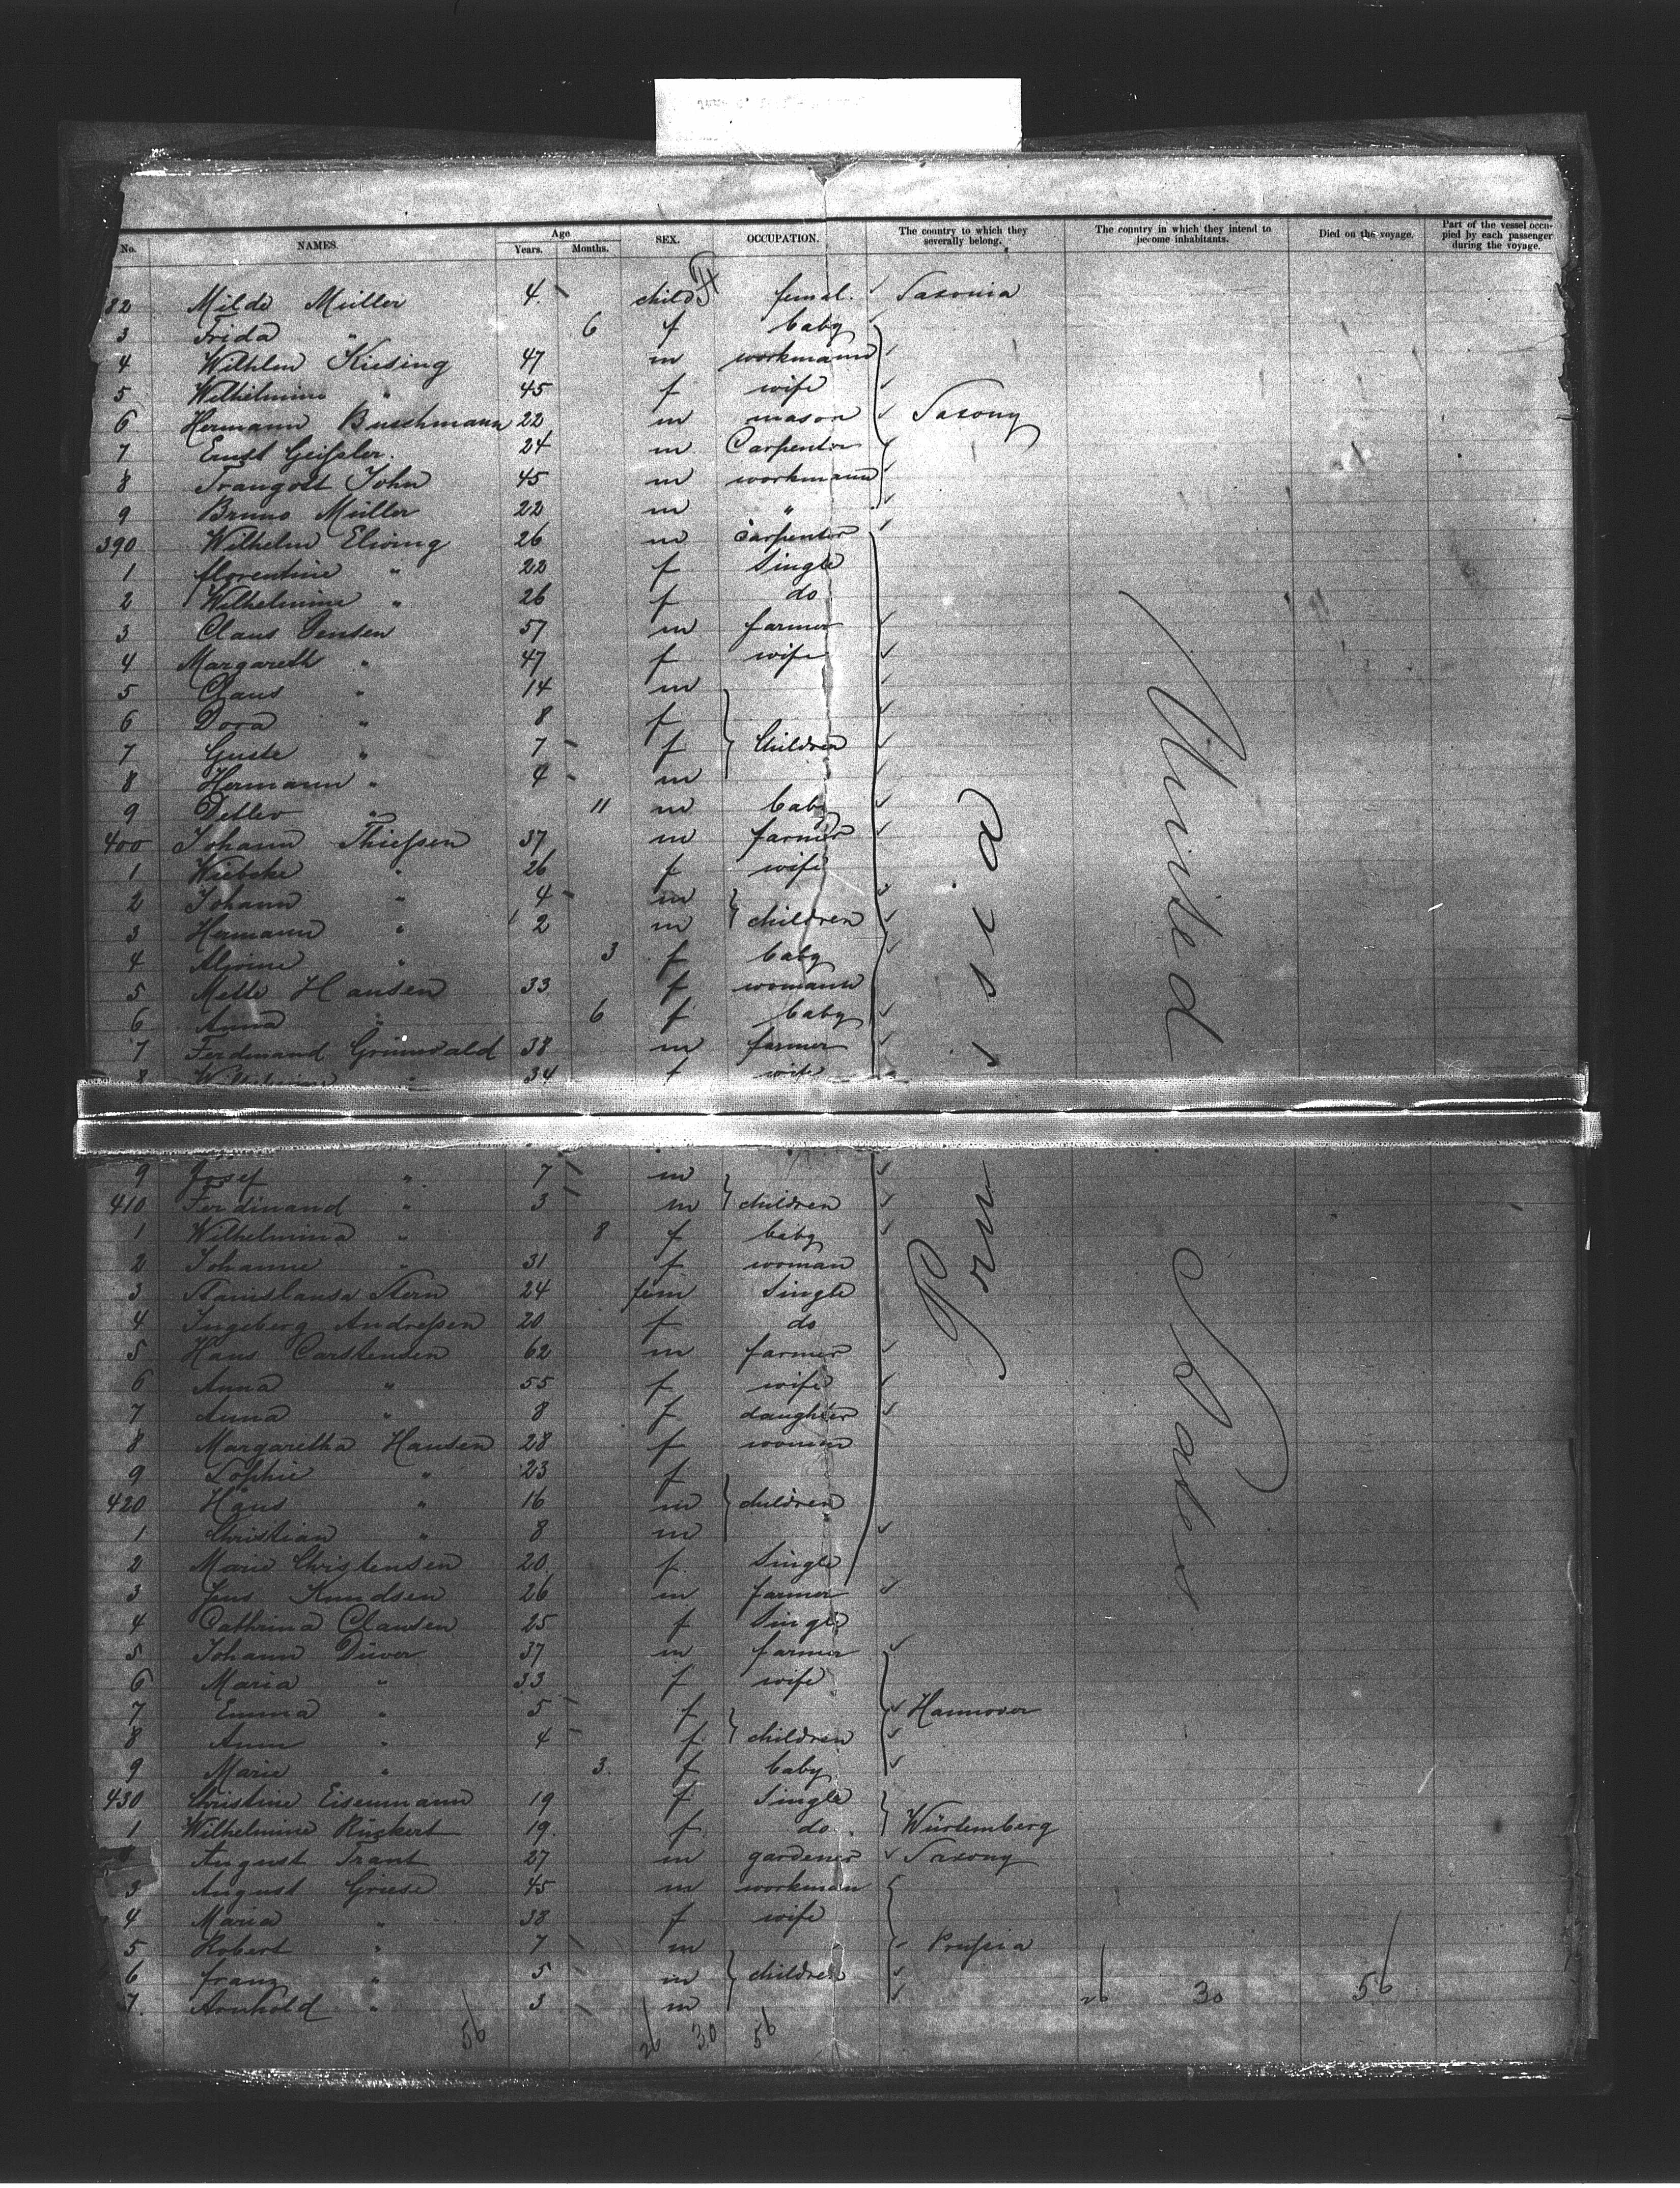 No. NAMES. Age Years. Months. SEX. OCCUPATION. The country to which they severally belong. The country in which they intend to become inhabitants. Died on the voyage. Part of the vessel occupied by each passenger during the voyage.
82 Milda Müller 4 child femal. Saxonia
3 Frida " 6 f baby
4 Wilhlm Kiesing 47 m workmann
5 Wilhelmine " 45 f wife
6 Hermann Buschmann 22 m mason Saxony
7 Ernst Geißler. 24 m Carpenter
8 Traugott John 45 m workmann
9 Bruno Müller 22 m "
390 Wilhelm Elwing 26 m carpenter
1 florentine " 22 f Single
2 Wilhelmine " 26 f do
3 Claus Jensen 57 m farmer
4 Margareth " 47 f wife
5 Claus " 14 m
6 Dora " 8 f
7 Guste " 7 f Children
8 Hermann " 4 m
9 Detlev " 11 m baby
400 Johann Thießen 37 m farmer
1 Wiebcke " 26 f wife
2 Johann " 4 m
3 Hermann " 2 m children
4 Alwine " 3 f baby
5 Mette Hansen 33 f womann
6 Anna " 6 f baby
7 Ferdinand Grunwald 38 m farmer
8 Wilhelmine " 34 f wife
9 Josef " 7 m
410 Ferdinand " 3 m children
1 Wilhelmina " 8 f baby
2 Johanne " 31 f woman
3 Stern 24 fem Single
4 Ingeberg Andreßen 20 f do
5 Hans Carstensen 62 m farmer
6 Anna " 55 f wife
7 Anna " 8 f daughter
8 Margaretha Hansen 28 f woman
9 Sophie " 23 f
420 Hans " 16 m children
1 Christian " 8 m
2 Marie Christensen 20 f Single
3 Jens Knudsen 26 m farmer
4 Cathrina Clausen 25 f Single
5 Johann Düver 37 m farmer
6 Maria " 33 f wife
7 Emma " 5 f Hannover
8 Ann " 4 f children
9 Marie " 3 f baby
430 Christine Eisenmann 19 f Single
1 Wilhelmine Rückert 19 f do. Würtemberg
August Trant 27 m gardener Saxony
3 August Griese 45 m workman
4 Maria " 38 f wife
5 Robert " 7 m Preußia
6 franz " 5 m children
7. Arnhold " 3 m
26 30 56
56 26 30 56
Prussia
United States